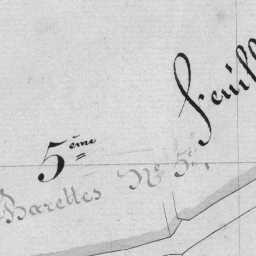 5ème feuill
Barettes No 5.